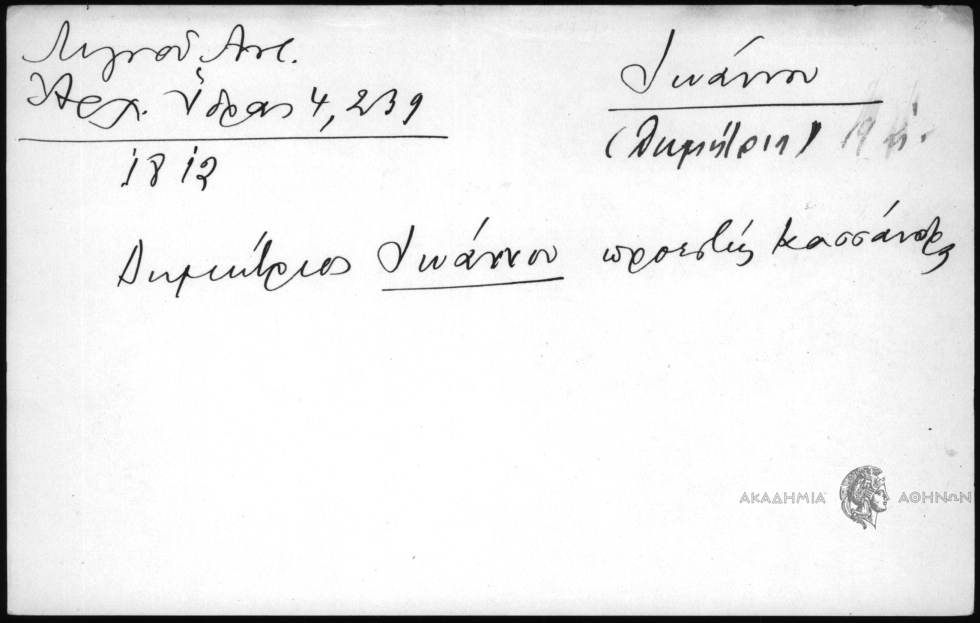 Λιγνοῦ Ἀντ.
Ἀρχ. Ὕδρας 4, 239
1812
Ἰωάννου
(Δημήτρης)
Δημήτριος Ἰωάννου προεστὼς Κασσάνδρας
ΑΚΑΔΗΜΙΑ ΑΘΗΝΩΝ